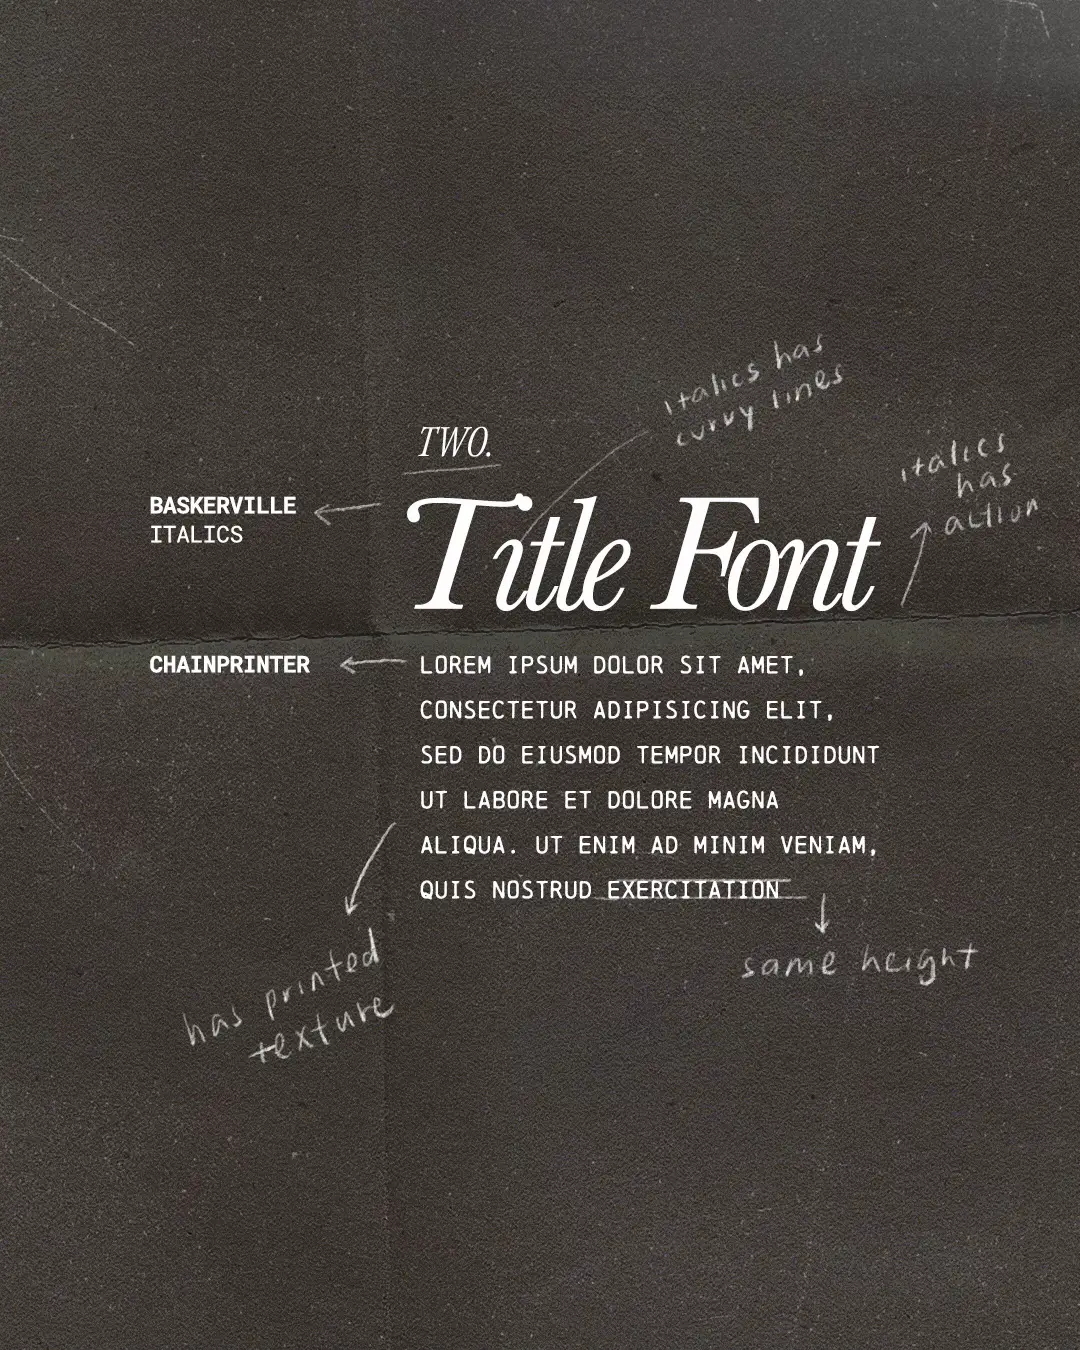 italics has
curvy lines
TWO.
italics
has
action
BASKERVILLE
ITALICS
Title Font
CHAINPRINTER
LOREM IPSUM DOLOR SIT AMET,
CONSECTETUR ADIPISICING ELIT,
SED DO EIUSMOD TEMPOR INCIDIDUNT
UT LABORE ET DOLORE MAGNA
ALIQUA. UT ENIM AD MINIM VENIAM,
QUIS NOSTRUD EXERCITATION
same height
has printed
texture